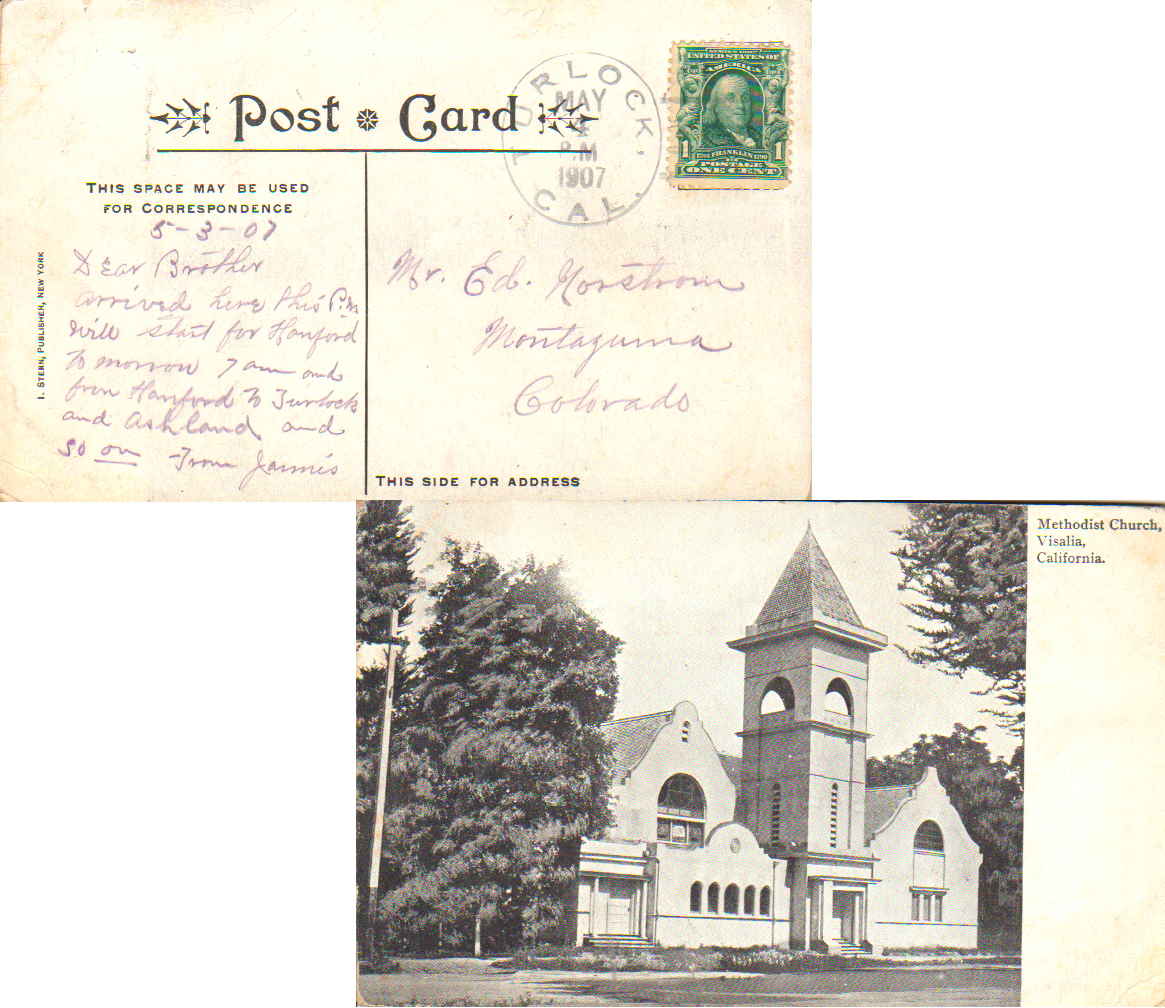 Post Card
THIS SPACE MAY BE USED
FOR CORRESPONDENCE
5-3-07
Dear Brother
arrived here this P.M
will start for Hanford
to morrow 7 am and
from Hanford to Turlock
and Ashland and
so on From Jannis
I. STERN, PUBLISHER, NEW YORK
TURLOCK, CAL.
MAY
4
P.M
1907
SERIES 1902
UNITED STATES OF
AMERICA
1 1706 FRANKLIN 1790 1
POSTAGE
ONE CENT
Mr. Ed. Norstrom
Montazuma
Colorado
THIS SIDE FOR ADDRESS
Methodist Church,
Visalia,
California.